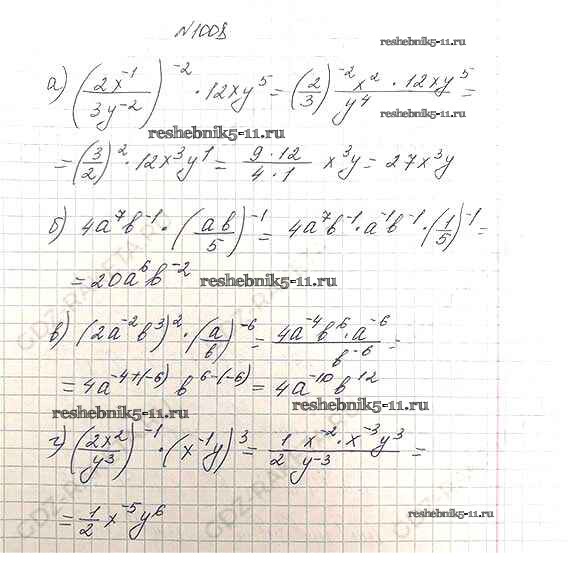 №1008
reshebnik5-11.ru
а) (2x⁻¹/3y⁻²)⁻² · 12xy⁵ = (2/3)⁻² x² · 12xy⁵/y⁴ =
reshebnik5-11.ru
reshebnik5-11.ru
= (3/2)² · 12x³y¹ = 9·12/4·1 x³y = 27x³y
б) 4a⁷b⁻¹ · (ab/5)⁻¹ = 4a⁷b⁻¹ · a⁻¹b⁻¹ · (1/5)⁻¹ =
= 20a⁶b⁻²
reshebnik5-11.ru
в) (2a⁻²b³)² · (a/b)⁻⁶ = 4a⁻⁴b⁶ · a⁻⁶/b⁻⁶ =
= 4a⁻⁴⁺⁽⁻⁶⁾ b⁶⁻⁽⁻⁶⁾ = 4a⁻¹⁰b¹²
reshebnik5-11.ru
reshebnik5-11.ru
г) (2x²/y³)⁻¹ · (x⁻¹y)³ = 1/2 x⁻² · x⁻³y³/y⁻³ =
= 1/2 x⁻⁵y⁶
reshebnik5-11.ru